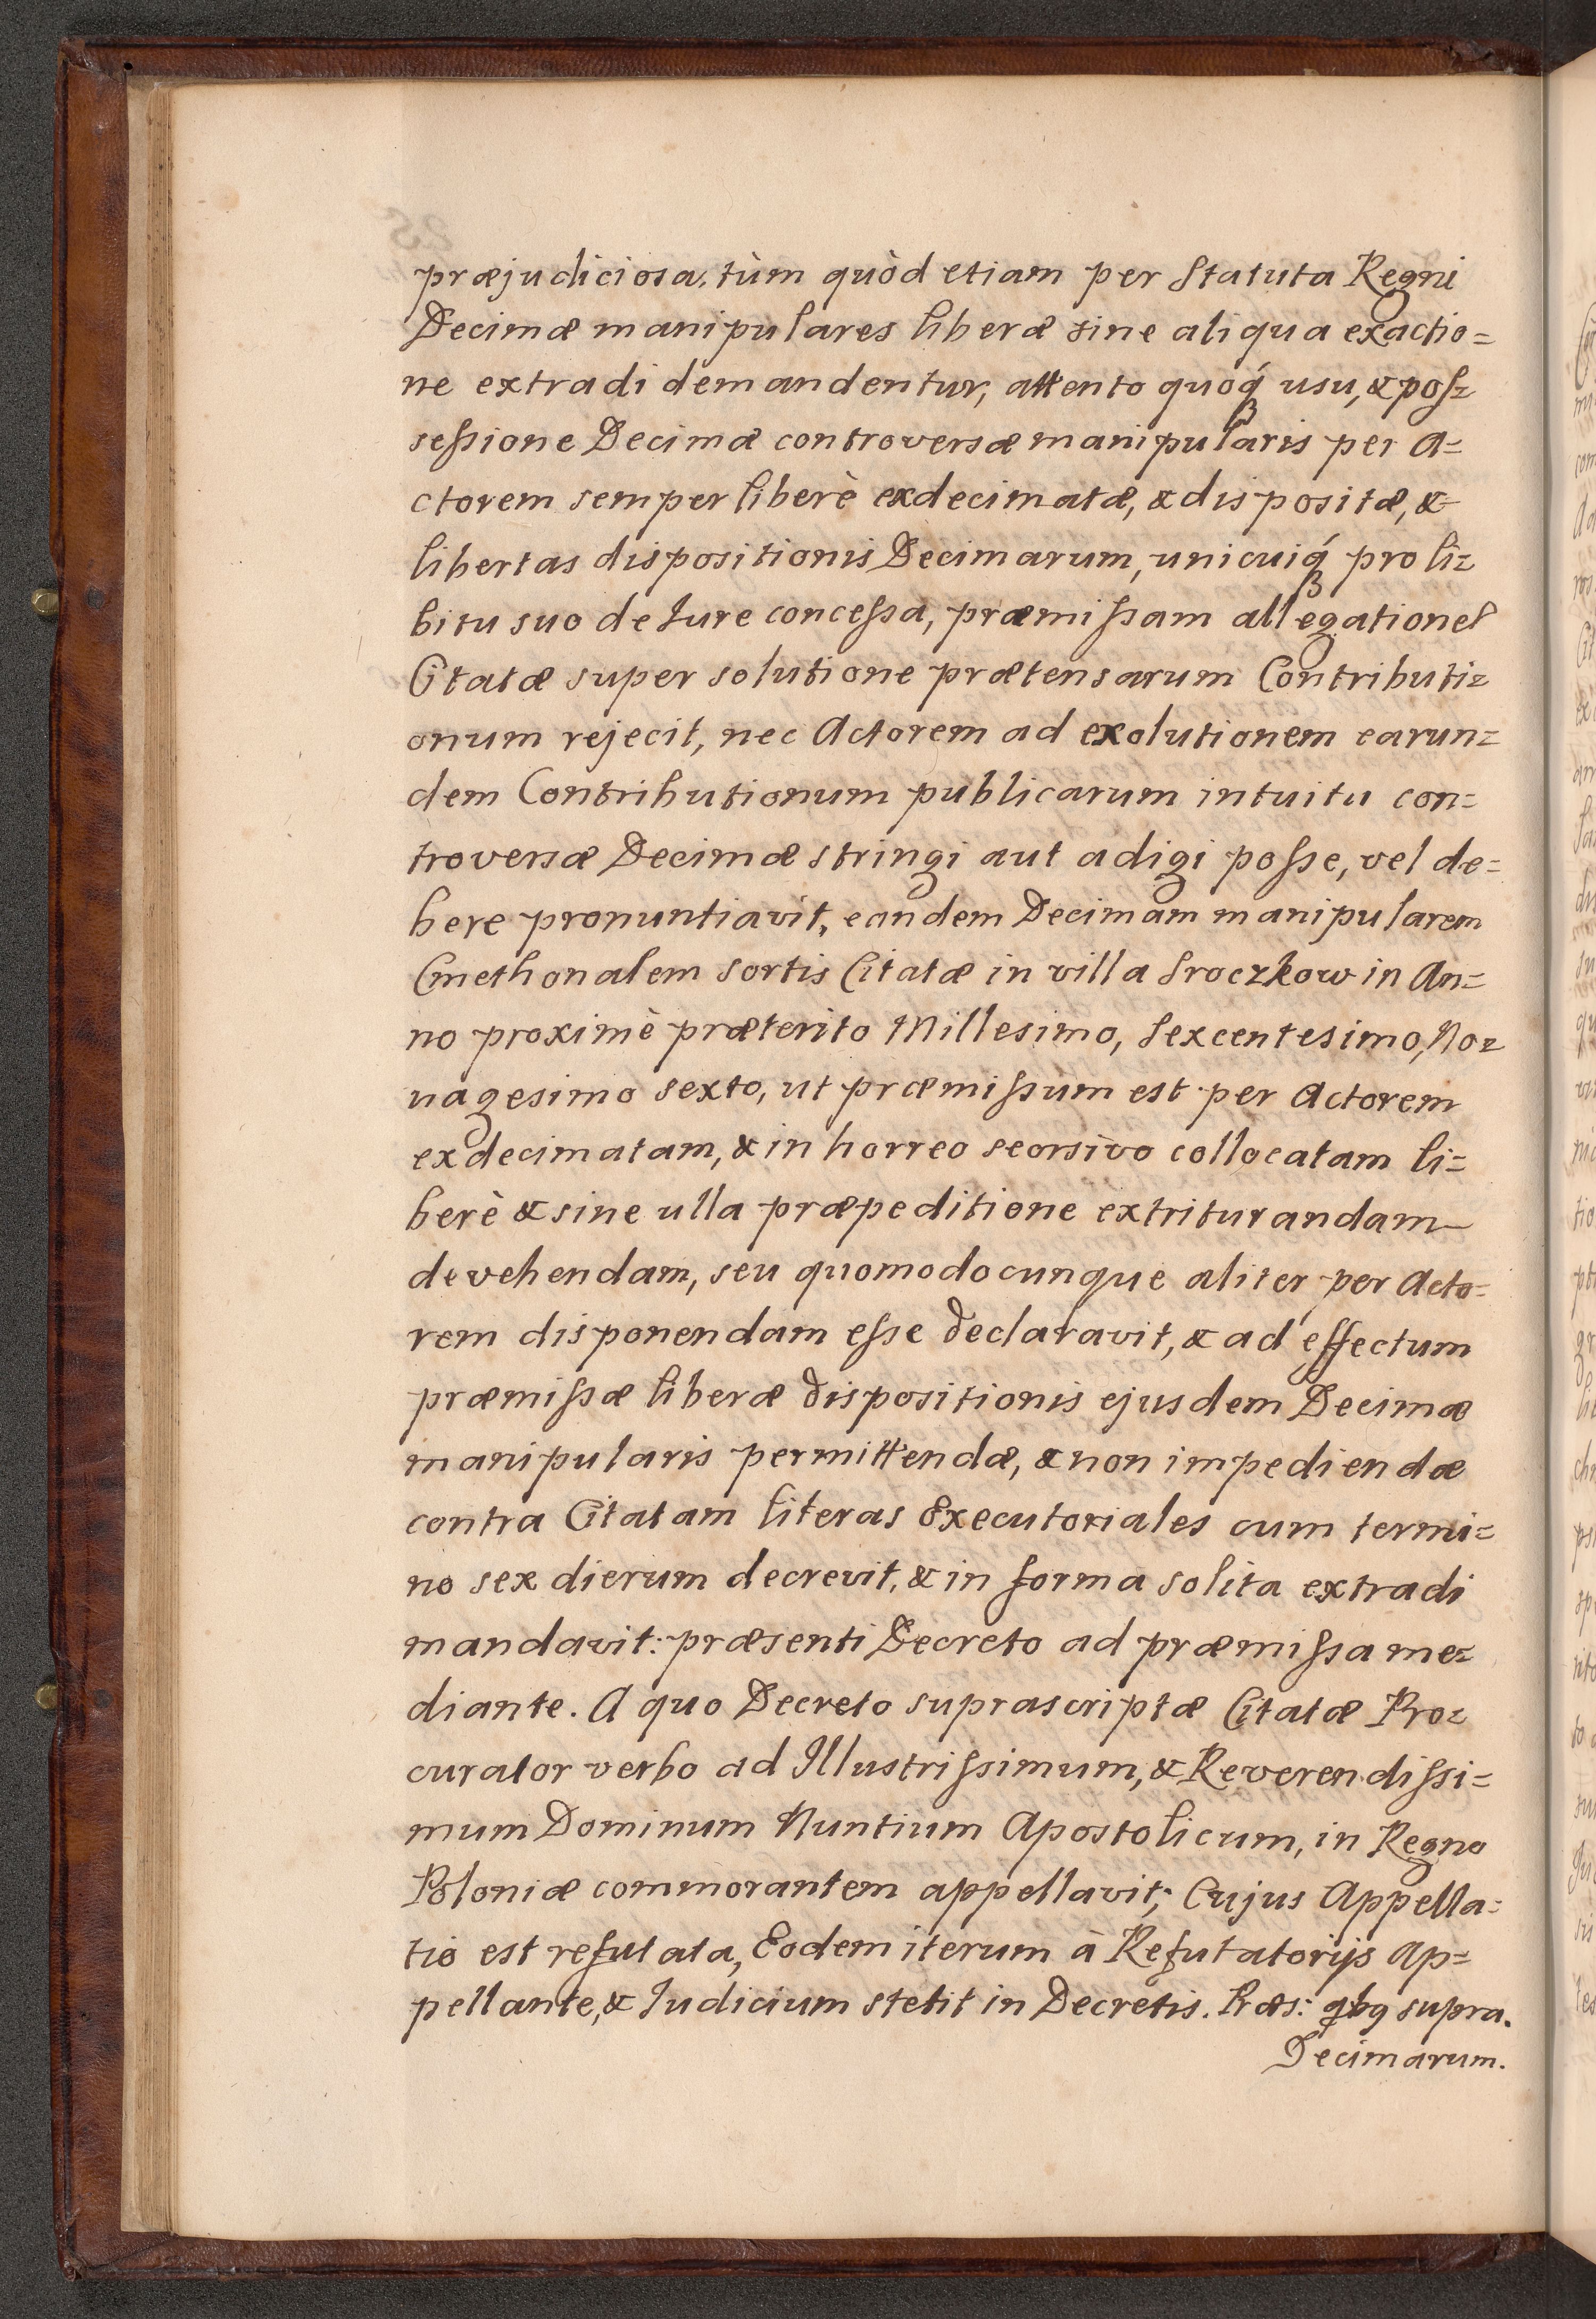 præjudiciosa, tùm quòd etiam per Statuta Regni
Decimæ manipulares liberæ sine aliqua exactio=
ne extradi demandentur, attento quóq́ꝫ usu, & pos=
sessione Decimæ controversæ manipularis per A=
ctorem semper liberè exdecimatæ, & dispositæ, &
libertas dispositionis Decimarum, unicuiq́ꝫ pro li=
bitu suo de Jure concessa, præmissam allegationem
Citatæ super solutione prætensarum Contributi=
onum rejecit, nec Actorem ad exolutionem earun=
dem Contributionum publicarum intuitu con=
troversæ Decimæ stringi aut adigi posse, vel de=
bere pronuntiavit, eandem Decimam manipularem
Cmethonalem sortis Citatæ in villa Sroczkow in An=
no proximè præterito Millesimo, Sexcentesimo, No=
nagesimo sexto, ut præmissum est per Actorem
exdecimatam, & in horreo seorsivo collocatam li=
berè & sine ulla præpeditione extriturandam
devehendam, seu quomodocunque aliter per Acto=
rem disponendam esse declaravit, & ad effectum
præmissæ liberæ dispositionis ejusdem Decimæ
manipularis permittendæ, & non impediendæ
contra Citatam literas Executoriales cum termi=
no sex dierum decrevit, & in forma solita extradi
mandavit: præsenti Decreto ad præmissa me=
diante. A quo Decreto suprascriptæ Citatæ Pro=
curator verbo ad Illustrissimum, & Reverendissi=
mum Dominum Nuntium Apostolicum, in Regno
Poloniæ commorantem appellavit; Cujus Appella=
tio est refutata, Eodem iterum à Refutatorijs Ap=
pellante, & Judicium stetit in Decretis. Præs: qbꝯ supra.
Decimarum.